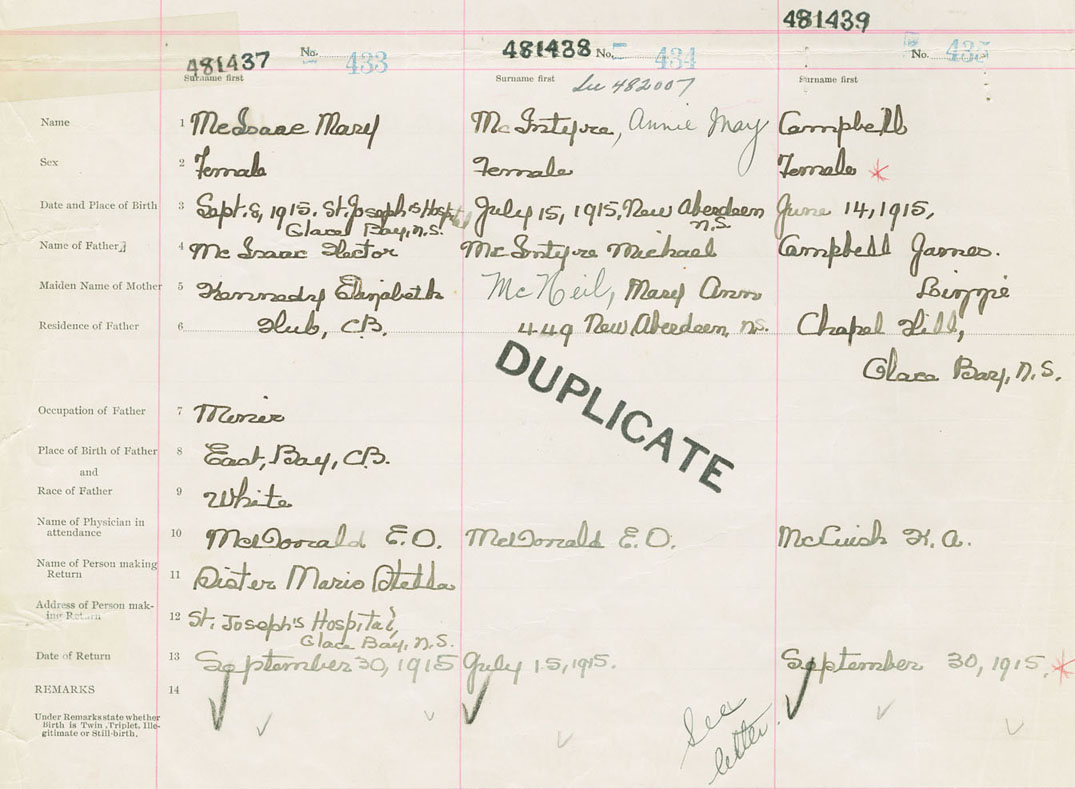 481439
481437 No. 433
481438 No. 434
No. 435
Surname first
Surname first
Surname first
See 482007
Name 1 McIsaac Mary
McIntyre, Annie May
Campbell
Sex 2 Female
Female
Female *
Date and Place of Birth 3 Sept. 8, 1915. St. Joseph's Hospital
Glace Bay, N.S.
July 15, 1915, New Aberdeen
N.S.
June 14, 1915,
Name of Father 4 McIsaac Hector
McIntyre Michael
Campbell James.
Maiden Name of Mother 5 Kennedy Elizabeth
McNeil, Mary Ann
Lizzie
Residence of Father 6 Hub, C.B.
449 New Aberdeen, N.S.
Chapel Hill,
Glace Bay, N.S.
DUPLICATE
Occupation of Father 7 Miner
Place of Birth of Father 8 East, Bay, C.B.
and
Race of Father 9 White
Name of Physician in
attendance 10 McDonald E.O.
McDonald E.O.
McCuish K.A.
Name of Person making
Return 11 Sister Maris Stella
Address of Person mak-
ing Return 12 St. Joseph's Hospital,
Glace Bay, N.S.
Date of Return 13 September 30, 1915
July 15, 1915.
September 30, 1915. *
REMARKS 14
Under Remarks state whether
Birth is Twin, Triplet, Ille-
gitimate or Still-birth.
See
letter